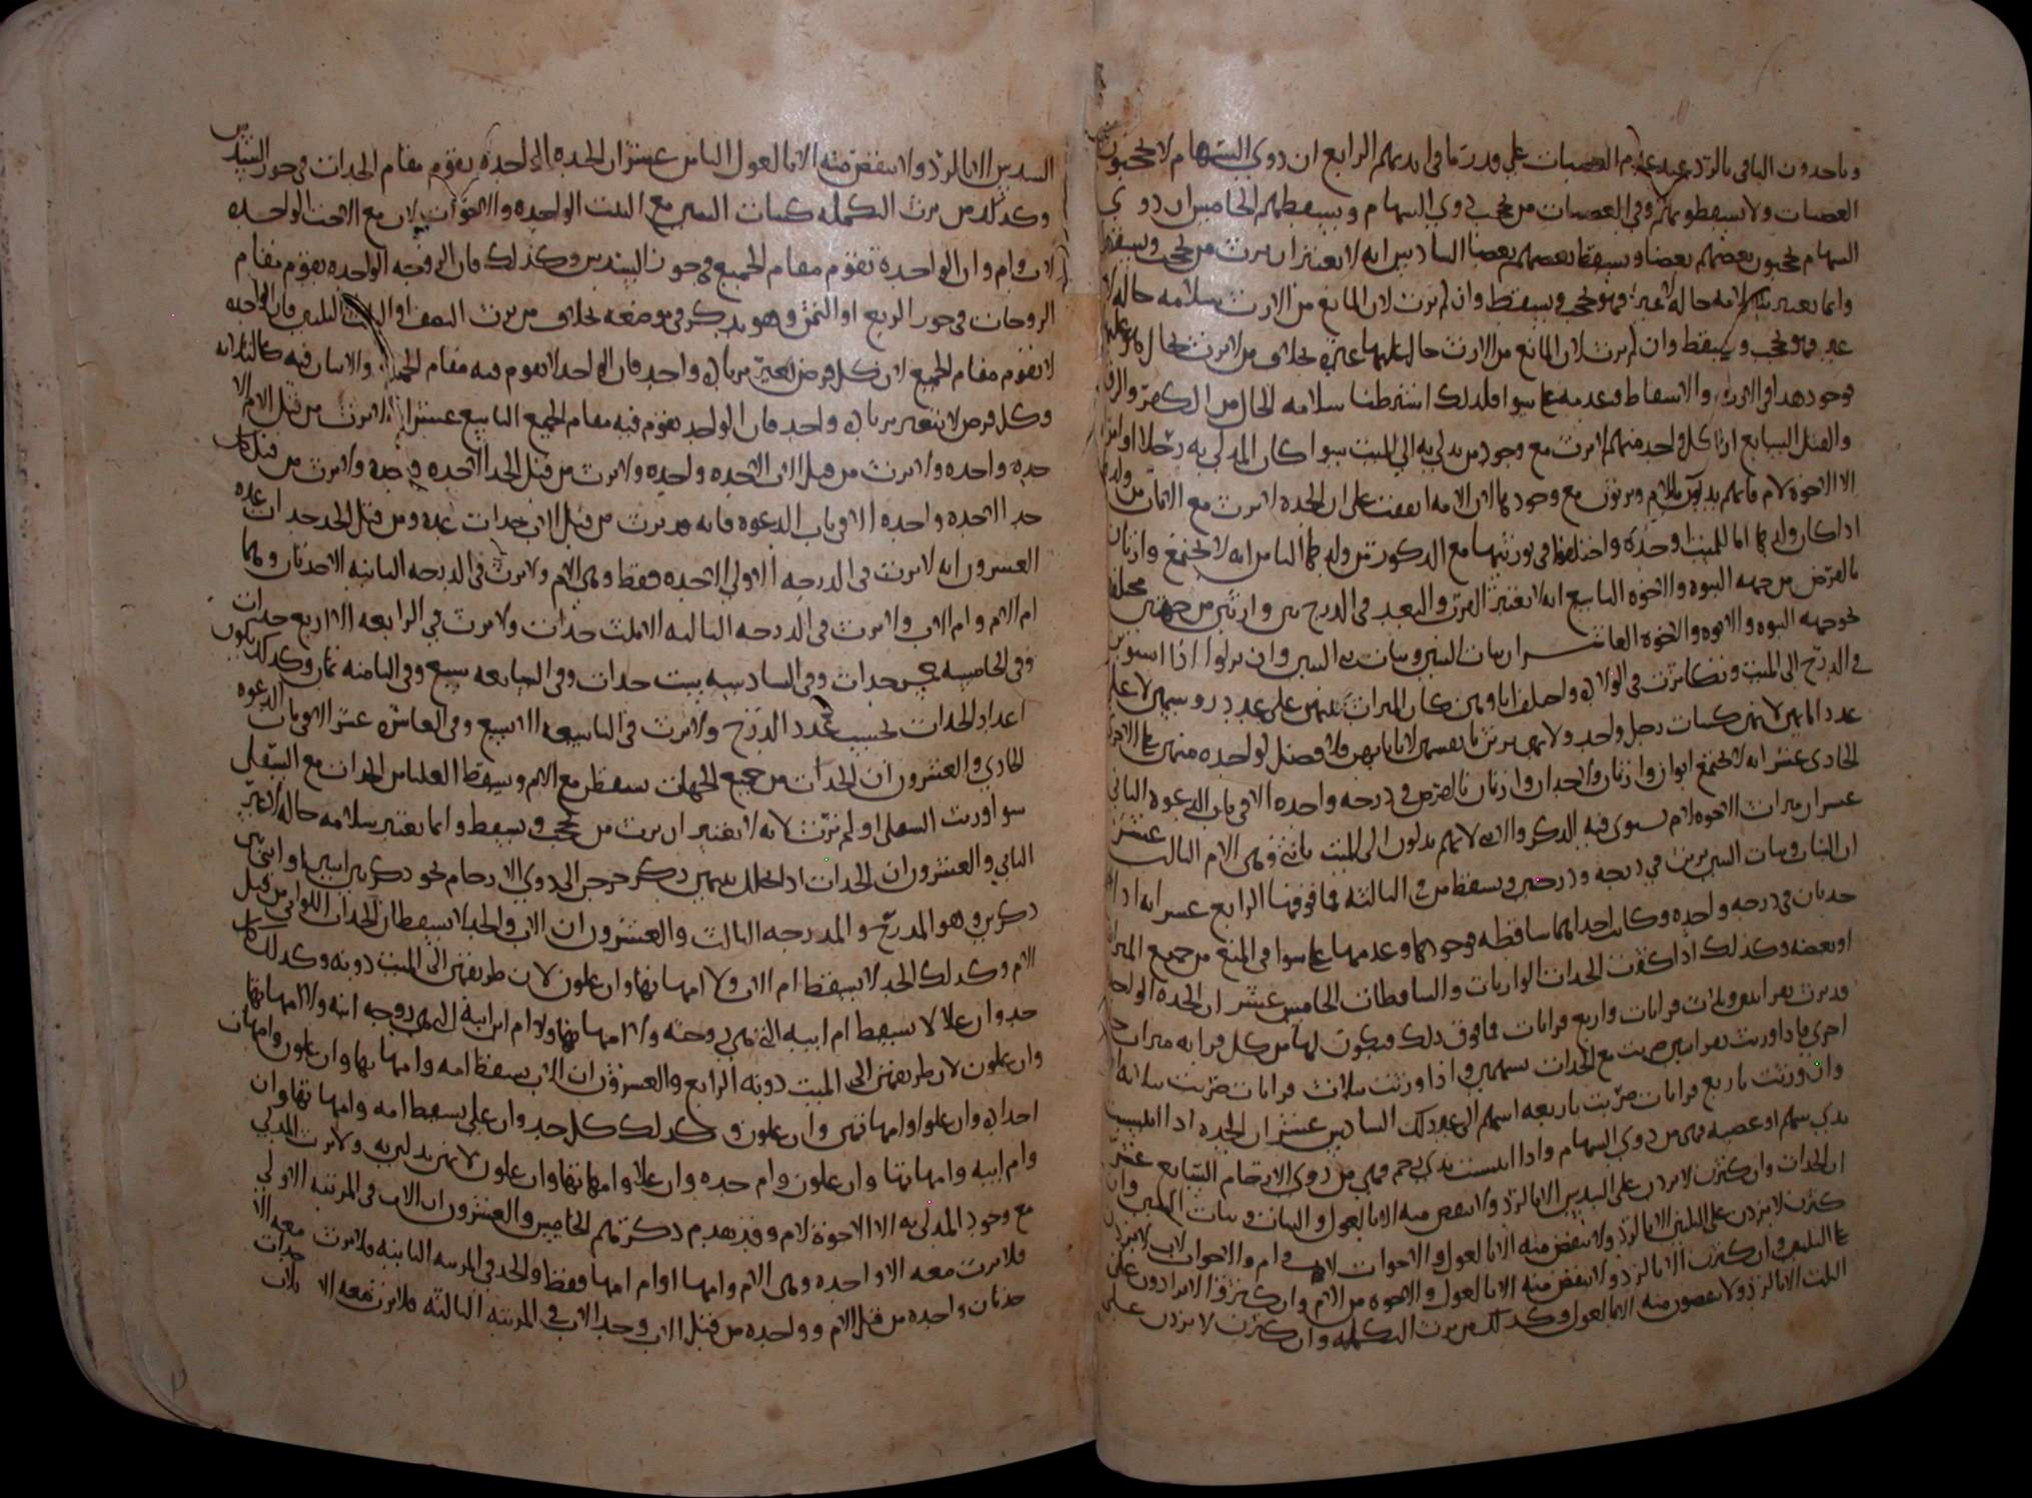 وياخدون الباقي بالرد عند عدم العصبات على قدر ما في ايديهم الرابع ان ذوي السهام لا يحجبون
العصبات ولا يسقطونهم وفي العصبات من يحجب ذوي السهام ويسقطهم الخامس ان ذوي
السهام يحجبون بعضهم بعضا ويسقط بعضهم بعضا السادس انه لا يعتبر ان يرث من يحجب ويسقط
وانما يعتبر سلامه حاله لا غير فهو يحجب ويسقط وان لم يرث لان المانع من الارث سلامه حاله لا
غير فهو يحجب ويسقط وان لم يرث لان المانع من الارث حال عليها غيره بخلاف من لا يرث بحال
فوجود هذا في الارث والاسقاط وعدمه على سوا فلذلك اشترطنا سلامه الحال من الكفر والرق
والقتل السابع ان كل واحد منهم لا يرث مع وجود من يدلي به الى الميت سوا كان المدلي به رجلا او امراه
الا الاخوة لام فانهم يدلون بالام ويرثون مع وجودها الا ان الامه اتفقت على ان الجده لا ترث مع الاثنان من ولدها
اذا كان ولدها اما للميت وحده واختلفوا في توريثها مع الدكور من ولدها الثامن انه لا يجتمع وارثان
بالفرض من جهه البنوه والاخوه التاسع انه لا يعتبر القرب والبعد في الدرج بين وارثين من جهتين مختلفتين
نحو جهه البنوه والابوه والاخوه العاشر ان بنات البنين وبنات بني البنين وان نزلوا اذا استوين
في الدرج الى الميت وتكاثرن في الاولاد واختلف اباوهن كان الميراث بينهن على عدد روسهن لا على
عدد ابايهن لانهن كبنات رجل واحد ولانهن يرثن بانفسهن لا بابايهن فلا فضل لواحده منهن على الاخرى
الحادي عشر انه لا يجتمع ابوان وارثان ولا جدان وارثان بالفرض في درجه واحده الا في باب الدعوه الثاني
عشر ان ميراث الاخوه لام يسوى فيه الدكر والانثى لانهم يدلون الى الميت بانثى وهي الام الثالث عشر
ان البنات وبنات البنين يرثن في درجه ودرجتين ويسقطن في الثالثه فما فوقها الرابع عشر انه اذا
جدتان في درجه واحده وكانت احداهما ساقطه فوجودها وعدمها على سوا في المنع من جميع الميراث
او بعضه وكذلك اذا كثرت الجدات الوارثات والساقطات الخامس عشر ان الجده الواحده
قد ترث بقرابتين وثلاث قرابات واربع قرابات فما فوق ذلك ويكون لها من كل قرابه ميراث جده
اخرى فاذا ورثت بقرابتين ضربت مع الجدات بسهمين واذا ورثت بثلاث قرابات ضربت بثلاثه
وان ورثت باربع قرابات ضربت باربعه اسهم الى غير ذلك السادس عشر ان الجده اذا انتسبت
بذي سهم او عصبه فهي من ذوي السهام واذا انتسبت بذي رحم فهي من ذوي الارحام السابع عشر
ان الجدات وان كثرن لا يزدن على السدس الا بالرد ولا ينقص منه الا بالعول والبنات وبنات البنين وان
كثرن لا يزدن على الثلثين الا بالرد ولا ينقص منه الا بالعول والاخوات لاب وام والاخوات لاب لا يزدن
على الثلثين وان كثرن الا بالرد ولا ينقص منه الا بالعول والاخوه من الام وان كثروا لا يزادون على
الثلث الا بالرد ولا ينقصون منه الا بالعول وكذلك من يرث التكمله وان كثرن لا يزدن على
السدس الا بالرد ولا ينقض منه الا بالعول الثامن عشر ان الجده الواحده تقوم مقام الجدات في حوز السدس
وكذلك من يرث التكمله كبنات البنين مع البنت الواحده والاخوات لاب مع الاخت الواحده
لاب وام وان الواحدة تقوم مقام الجميع في حوز السدس وكذلك فان الزوجه الواحده تقوم مقام
الزوجات في حوز الربع او الثمن وهو يذكر في موضعه بخلاف من يرث النصف او الثلث او الثلثين فان الواحده
لا تقوم مقام الجميع لان كل فرض يتغير بزياده واحد فان الواحد لا يقوم فيه مقام الجميع والاثنان فيه كالثلاثه
وكل فرض لا يتغير بزياده واحد فان الواحد يقوم فيه مقام الجميع التاسع عشر انه لا يرث من قبل الام الا
جده واحده ولا يرث من قبل الاب الا جده واحده ولا يرث من قبل الجد الا جده واحده ولا يرث من قبل كل
جد الا جده واحده الا في باب الدعوه فانه قد يرث من قبل الاب جدات عده ومن قبل الجد جدات عده
العشرون انه لا يرث في الدرجه الاولى الا جده فقط وهي الام ولا يرث في الدرجه الثانيه الا جدتان وهما
ام الام وام الاب ولا يرث في الدرجه الثالثه الا ثلث جدات ولا يرث في الرابعه الا اربع جدات
وفي الخامسه خمس جدات وفي السادسه ست جدات وفي السابعه سبع وفي الثامنه ثمان وكذلك يكون
اعداد الجدات بحسب عدد الدرج ولا يرث في التاسعه الا تسع وفي العاشره عشر الا في باب الدعوه
الحادي والعشرون ان الجدات من جميع الجهات يسقطن مع الام ويسقط العليا من الجدات مع السفلى
سوا ورثت السفلى او لم ترث لانه لا يعتبر ان يرث من يحجب ويسقط وانما يعتبر سلامه حاله لا غير
الثاني والعشرون ان الجدات اذا تخلل بينهن ذكر خرجن الى ذوي الارحام نحو ذكر بين انثيين او انثى بين
ذكرين وهو المدرج والمدرجه الثالث والعشرون ان الاب والجد لا يسقطان الجدات اللواتي من قبل
الام وكذلك الجد لا يسقط ام الاب ولا امهاتها وان علون لان طريقهن الى الميت دونه وكذلك كل
جد وان علا لا يسقط ام ابيه التي هي زوجته ولا امهاتها ولا ام ابن ابنه التي هي زوجه ابنه ولا امهاتها
وان علون لان طريقهن الى الميت دونه الرابع والعشرون ان الاب يسقط امه وامهاتها وان علون وامهات
اجداده وان علوا وامهاتهن وان علون وكذلك كل جد وان علا يسقط امه وامهاتها وان
وام ابيه وامهاتها وان علون وام جده وان علا وامهاتها وان علون لانهن يدلين به ولا يرث المدلي
مع وجود المدلى به الا الاخوة لام وقد تقدم ذكرهم الخامس والعشرون ان الاب في المرتبه الاولى
فلا يرث معه الا واحده وهي الام وامها او ام امها فقط والجد في المرتبه الثانيه فلا يرث معه الا
جدتان واحده من قبل الام وواحده من قبل الاب وجد الاب في المرتبه الثالثه فلا يرث معه الا ثلاث جدات